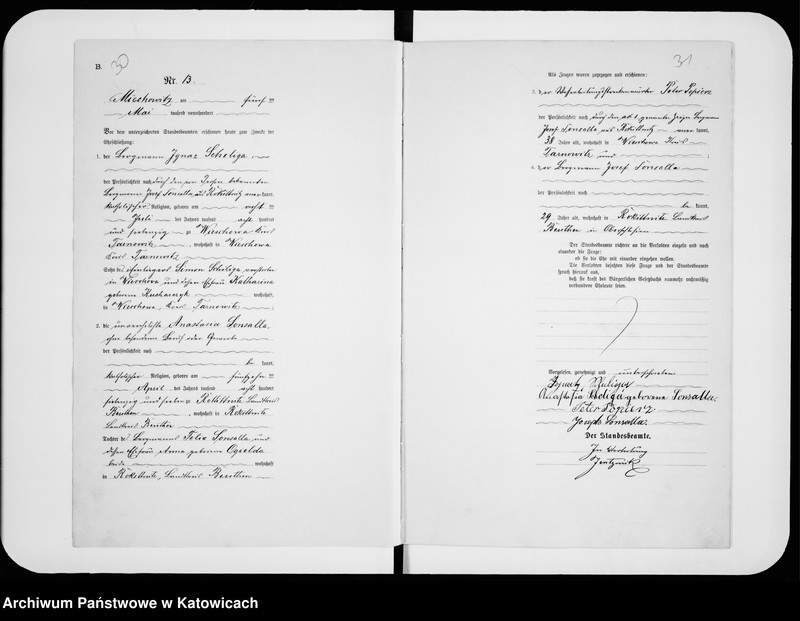 B.
30
Nr. 13.
Miechowitz am fünf ten
Mai tausend neunhundert
Vor dem unterzeichneten Standesbeamten erschienen heute zum Zwecke der
Eheschließung:
1. der Bergmann Ignaz Scholiga
der Persönlichkeit nach durch den
Bergmann Josef Lonsalla, aus Rokittnitz kannt,
katholischer Religion, geboren am acht ten
des Jahres tausend acht hundert
und siebenzig zu Wieschowa Kreis
Tarnowitz, wohnhaft in Wieschowa
Kreis Tarnowitz
Sohn des Simon Scholiga
in Wieschowa und dessen Ehefrau Katharina
geborene Kucharczyk wohnhaft
in Wieschowa, Kreis Tarnowitz
2. die unverehelichte Anastasia Lonsalla,
ohne besonderen Beruf oder Gewerbe
der Persönlichkeit nach
be kannt,
katholischer Religion, geboren am fünfzehn ten
April des Jahres tausend acht hundert
siebenzig und sieben zu Rokittnitz Landkreis
Beuthen, wohnhaft in Rokittnitz
Landkreis Beuthen
Tochter des Bergmanns Felix Lonsalla und
dessen Ehefrau Anna geborene Ogielda
beide wohnhaft
in Rokittnitz, Landkreis Beuthen
31
Als Zeugen waren zugezogen und erschienen:
3. der Peter Popierz
der Persönlichkeit nach durch den ad 4 genannten Zeugen Bergmann
Josef Lonsalla, aus Rokittnitz kannt,
38 Jahre alt, wohnhaft in Wieschowa Kreis
Tarnowitz und
4. der Bergmann Josef Lonsalla
der Persönlichkeit nach
be kannt,
29 Jahre alt, wohnhaft in Rokittnitz Landkreis
Beuthen in Oberschlesien
Der Standesbeamte richtete an die Verlobten einzeln und nach
einander die Frage:
ob sie die Ehe mit einander eingehen wollen.
Die Verlobten bejahten diese Frage und der Standesbeamte
sprach hierauf aus,
daß sie kraft des Bürgerlichen Gesetzbuchs nunmehr rechtmäßig
verbundene Eheleute seien.
Vorgelesen, genehmigt und unterschrieben
Anastasia geborene Lonsalla.
Peter Popierz
Joseph Lonsalla.
Der Standesbeamte.
In Vertretung
Archiwum Państwowe w Katowicach